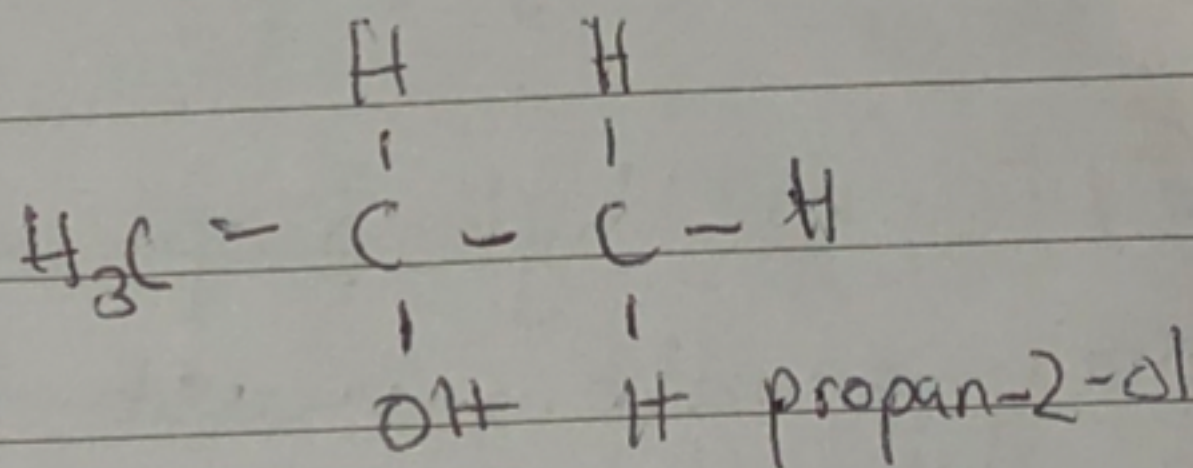 H H
| |
H₃C - C - C - H
| |
OH H propan-2-ol